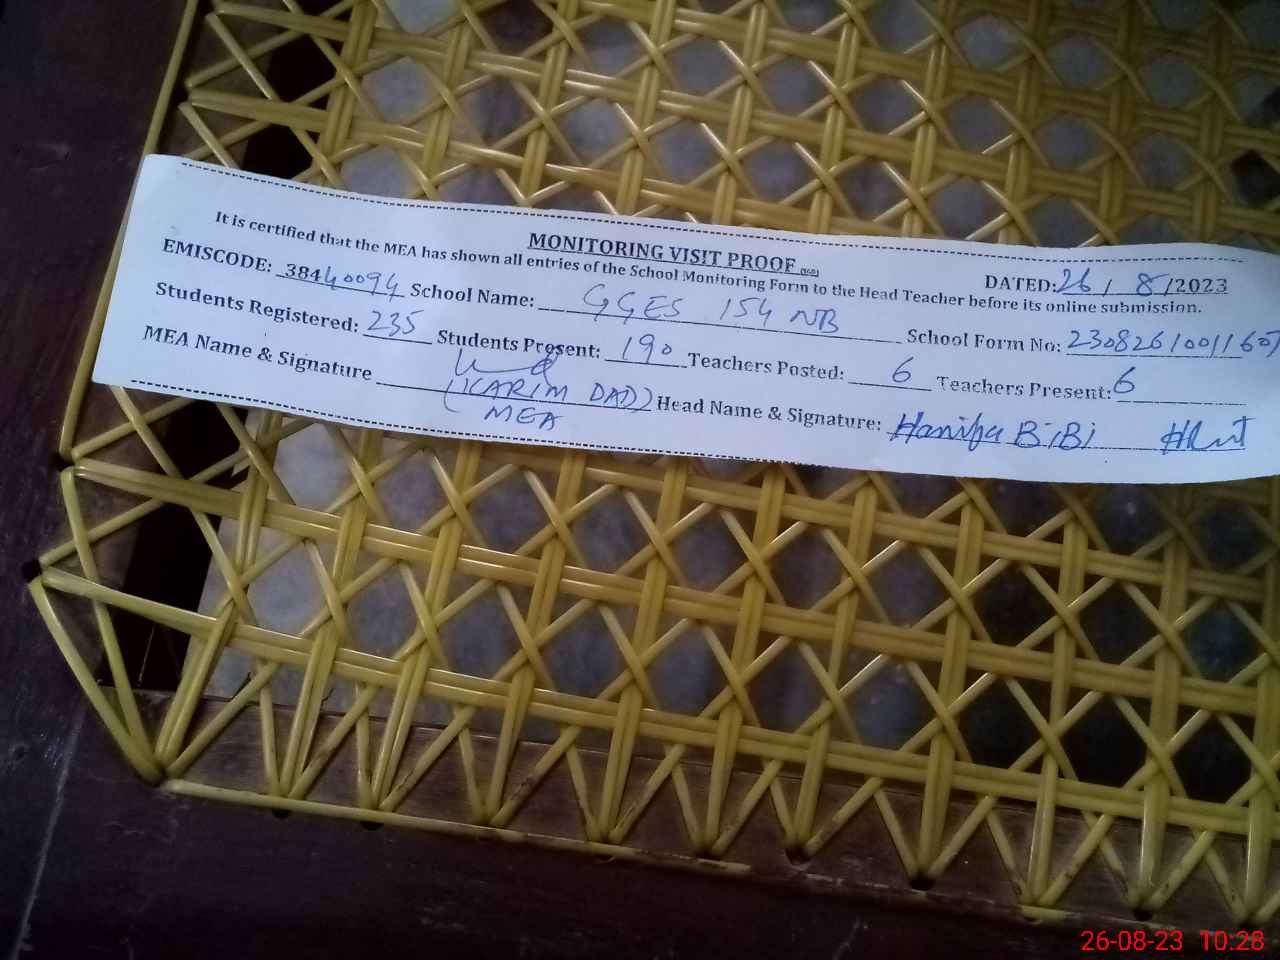 MONITORING VISIT PROOF
DATED: 26 / 8 /2023
It is certified that the MEA has shown all entries of the School Monitoring Form to the Head Teacher before its online submission.
EMISCODE: 38440094 School Name: GGES 154 NB School Form No: 2308261001165
Students Registered: 235 Students Present: 190 Teachers Posted: 6 Teachers Present: 6
MEA Name & Signature (KARIM DAD) Head Name & Signature: Hanifa BiBi
MEA
26-08-23 10:28